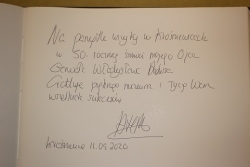 Na pamiątkę wizyty w Krośniewicach
w 50. rocznicę śmierci mojego Ojca
Generała Władysława
Gratuluję pięknego muzeum i życzę Wam
wielkich sukcesów
11.09.2020